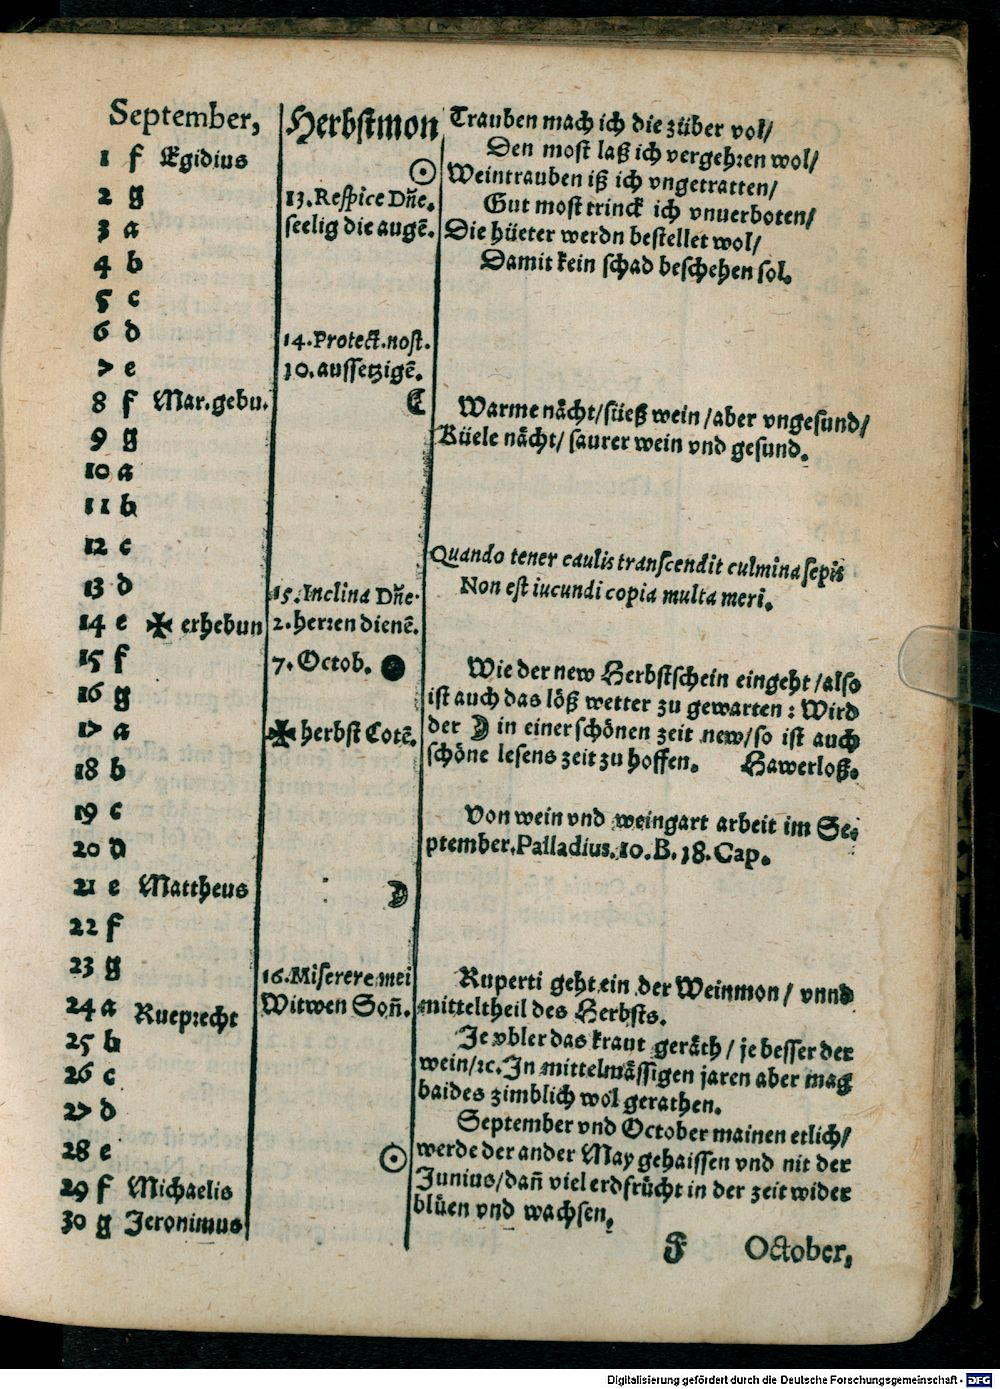 September,
1 f Egidius
2 g
3 a
4 b
5 c
6 d
7 e
8 f Mar.gebu.
9 g
10 a
11 b
12 c
13 d
14 e ✠ erhebun
15 f
16 g
17 a
18 b
19 c
20 d
21 e Mattheus
22 f
23 g
24 a Rueprecht
25 b
26 c
27 d
28 e
29 f Michaelis
30 g Jeronimus
Herbstmon
☉
13. Respice Dñe.
seelig die augē.
14. Protect. nost.
10. aussetzigē.
☾
15. Inclina Dñe.
2. herren dienē.
7. Octob. ●
✠ herbst Cotē.
☽
16. Miserere mei
Witwen Soñ.
☉
Trauben mach ich die züber vol/
Den most laß ich vergehren wol/
Weintrauben iß ich vngetratten/
Gut most trinck ich vnuerboten/
Die hüeter werdn bestellet wol/
Damit kein schad beschehen sol.
Warme nächt/ süeß wein/ aber vngesund/
Küele nächt/ saurer wein vnd gesund.
Quando tener caulis transcendit culmina sepis
Non est iucundi copia multa meri.
Wie der new Herbstschein eingeht/ also
ist auch das löß wetter zu gewarten: Wird
der ☽ in einer schönen zeit new/ so ist auch
schöne lesens zeit zu hoffen. Hawerloß.
Von wein vnd weingart arbeit im Se⸗
ptember. Palladius. 10. B. 18. Cap.
Ruperti geht ein der Weinmon/ vnnd
mitteltheil des Herbsts.
Je vbler das kraut geräth/ je besser der
wein/ ꝛc. In mittelmässigen jaren aber mag
baides zimblich wol gerathen.
September vnd October mainen etlich/
werde der ander May gehaissen vnd nit der
Junius/ dañ viel erdfrücht in der zeit wider
blüen vnd wachsen.
F October,
Digitalisierung gefördert durch die Deutsche Forschungsgemeinschaft - DFG